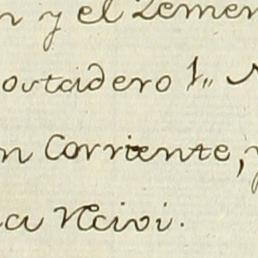 n y el Zemen
ostadero 1„ N
n Corriente, y
ca Ncivi.